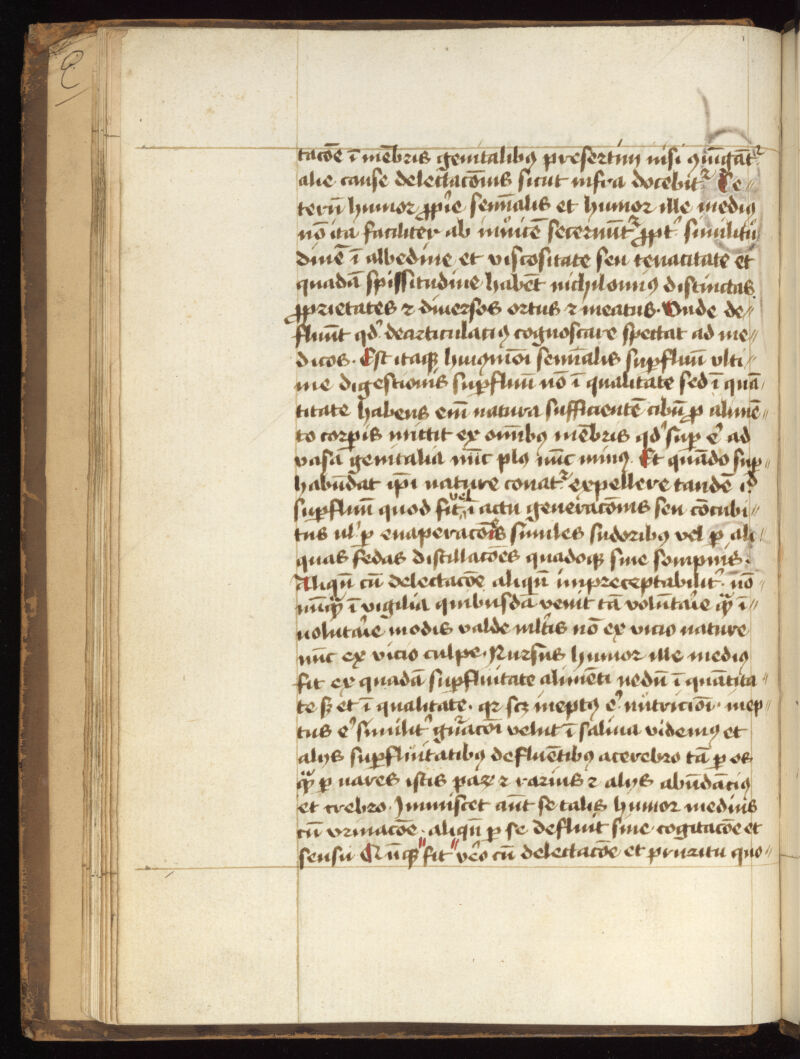 tacōe ī mēbris genitalibꝯ presertim nisi ꝯiūgāt᷑
alie cause delectacōnis sicut infra docebit᷑ Ce⸗
terū humor ꝓpͥe semīalis et humor ille mediꝯ
nō ita faciliter ab inuicē secernūt᷑ ꝓpt᷑ similitu⸗
dinē ī albedine et viscositate seu tenacitate et
quadā spissitudine habēt nichilominꝯ distinctas
ꝓprietates ⁊ diuersos ortus ⁊ meatus. Unde de⸗
fluūt qd᷑ dearticulatiꝯ cognoscare spectat ad me⸗
dicos. Est itaqꝫ huiꝯmōi semīalis suꝑfluū vlti⸗
me digestionis suꝑfluū nō ī qualitate sed ī quā⸗
titate habens em̄ natura sufficientē cibū ꝓ alimē⸗
to corꝑis mittit ex oīmbꝯ mēbris qd᷑ suꝑ ē ad
vasa genitalia nūc plꝯ nūc minꝯ. Et quādo suꝑ⸗
habūdat ip̄i nature conat᷑ expellere tandē id
suꝑfluū quod fit vel ī actu generacōnis seu cōcubi⸗
tus ul᷑ ꝑ euaperacōnis similes sudoribꝯ vel ꝑ ali⸗
quas fedas distillacōes quadoqꝫ sine sompnis.
Aliqn̄ cū delectacōe aliqn̄ impreceptabilit᷑. nō⸗
nūqꝫ ī vigilia quibusdā venit tā volūtarie qꝫ ī⸗
uolūtarie modis valde mltis nō ex vicio nature
nūc ex vicio culpe. Rursus humor ille mediꝯ
fit ex quadā suꝑfluitate alimēti nedū ī quātita⸗
te sꝫ et ī qualitate. qꝛ scꝫ ineptꝯ ē nutricioi. inep
tus ē similit᷑ gn̄acōi velut ī saliua videmꝯ et
alijs suꝑfluitatibꝯ defluētibꝯ acerebro tā ꝑ os
qꝫ ꝑ nares istis parꝫ ⁊ rarius ⁊ alijs abūdātiꝯ
et crebro. Inmiscet aūt se talis humor medius
cū vrinacōe. aliqn̄ ꝑ se defluit sine cogitacōe et
sensu Nūqꝫ fit vēo cū delectacōe et pruritu quo⸗